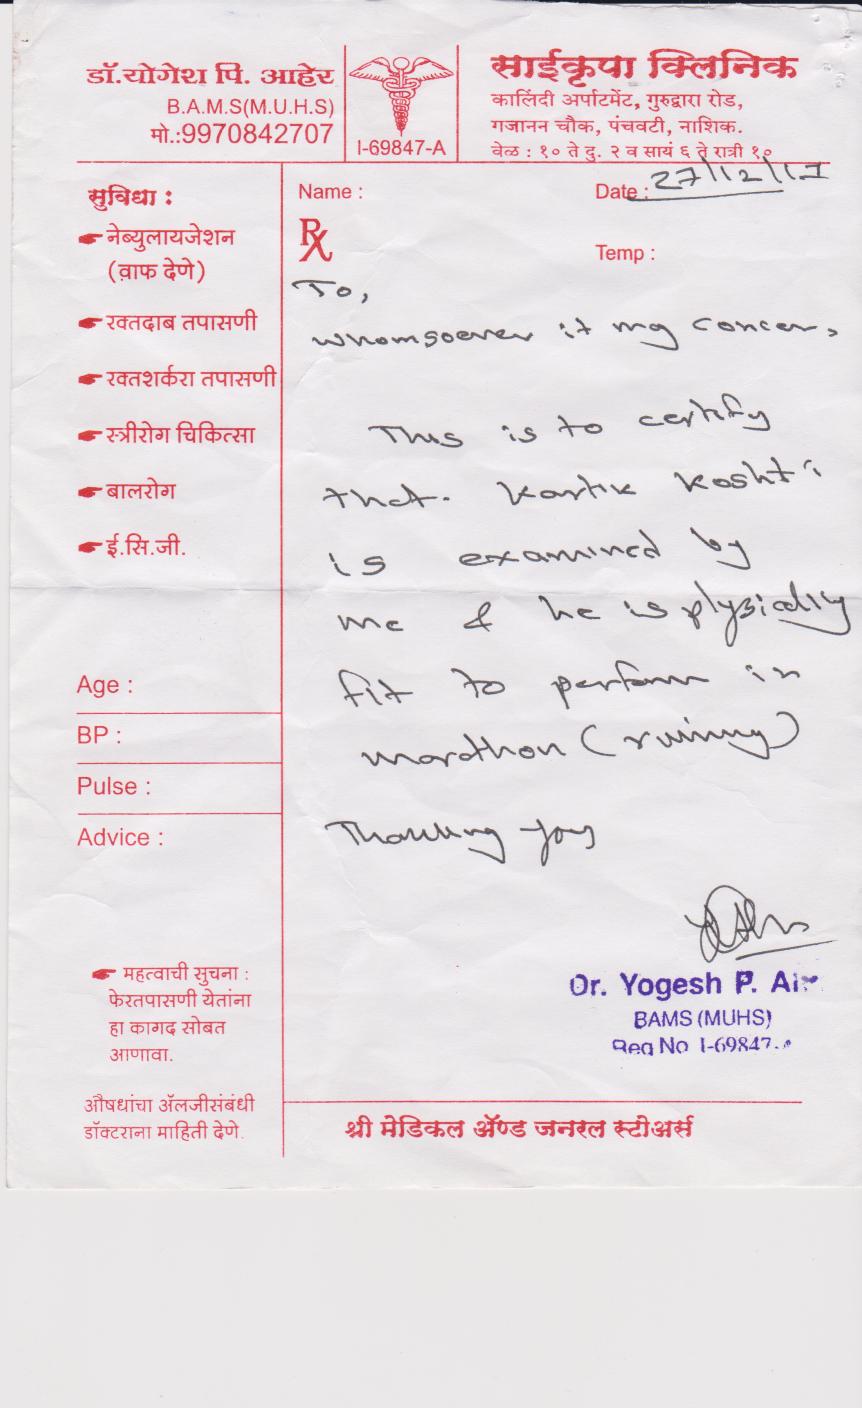 डॉ.योगेश पि. आहेर
B.A.M.S(M.U.H.S)
मो.:9970842707
I-69847-A
साईकृपा क्लिनिक
कालिंदी अर्पाटमेंट, गुरुद्वारा रोड,
गजानन चौक, पंचवटी, नाशिक.
वेळ : १० ते दु. २ व सायं ६ ते रात्री १०
सुविधा :
नेब्युलायजेशन
(वाफ देणे)
रक्तदाब तपासणी
रक्तशर्करा तपासणी
स्त्रीरोग चिकित्सा
बालरोग
ई.सि.जी.
Age :
BP :
Pulse :
Advice :
महत्वाची सुचना :
फेरतपासणी येतांना
हा कागद सोबत
आणावा.
औषधांचा ॲलजीसंबंधी
डॉक्टराना माहिती देणे.
Name :
Date : 27/12/17
Rx
Temp :
To,
whomsoever it my concer,
This is to certify
that. Kartik Koshti
is examined by
me & he is physically
fit to perform in
marathon (running)
Thanking you
Dr. Yogesh P.
BAMS (MUHS)
Reg No I-69847-
श्री मेडिकल ॲण्ड जनरल स्टोअर्स